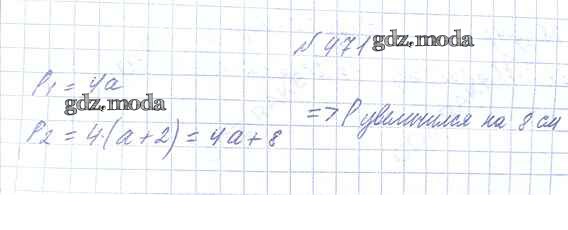 № 471 gdz.moda
P₁ = 4a
gdz.moda
P₂ = 4·(a+2) = 4a+8
=> P увеличился на 8 см